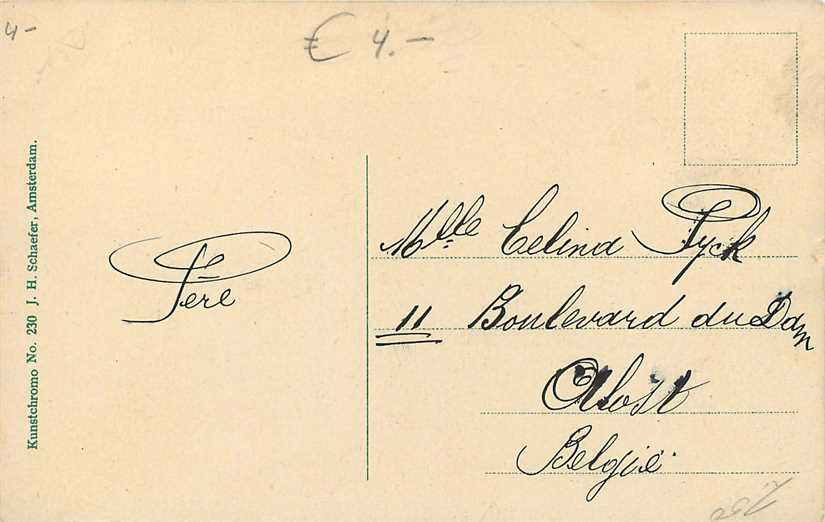 4-
€ 4.-
Kunstchromo No. 230 J. H. Schaefer, Amsterdam.
Père
Mlle Celina Pyck
11 Boulevard du Dam
Alost
België